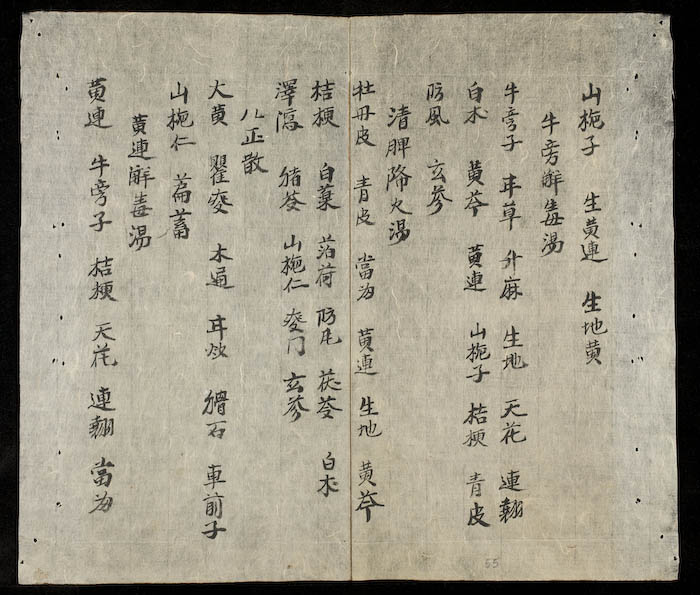 山梔子 生黃連 生地黃
牛旁解毒湯
牛旁子 甘草 升麻 生地 天花 連翹
白朮 黃芩 黃連 山梔子 桔梗 青皮
防風 玄參
清脾降火湯
牡丹皮 青皮 當為 黃連 生地 黃芩
桔梗 白藥 薄荷 防風 茯苓 白朮
澤瀉 猪苓 山梔仁 麥门 玄參
八正散
大黃 瞿麥 木通 甘炒 滑石 車前子
山梔仁 萹蓄
黃連解毒湯
黃連 牛旁子 桔梗 天花 連翹 當為
55